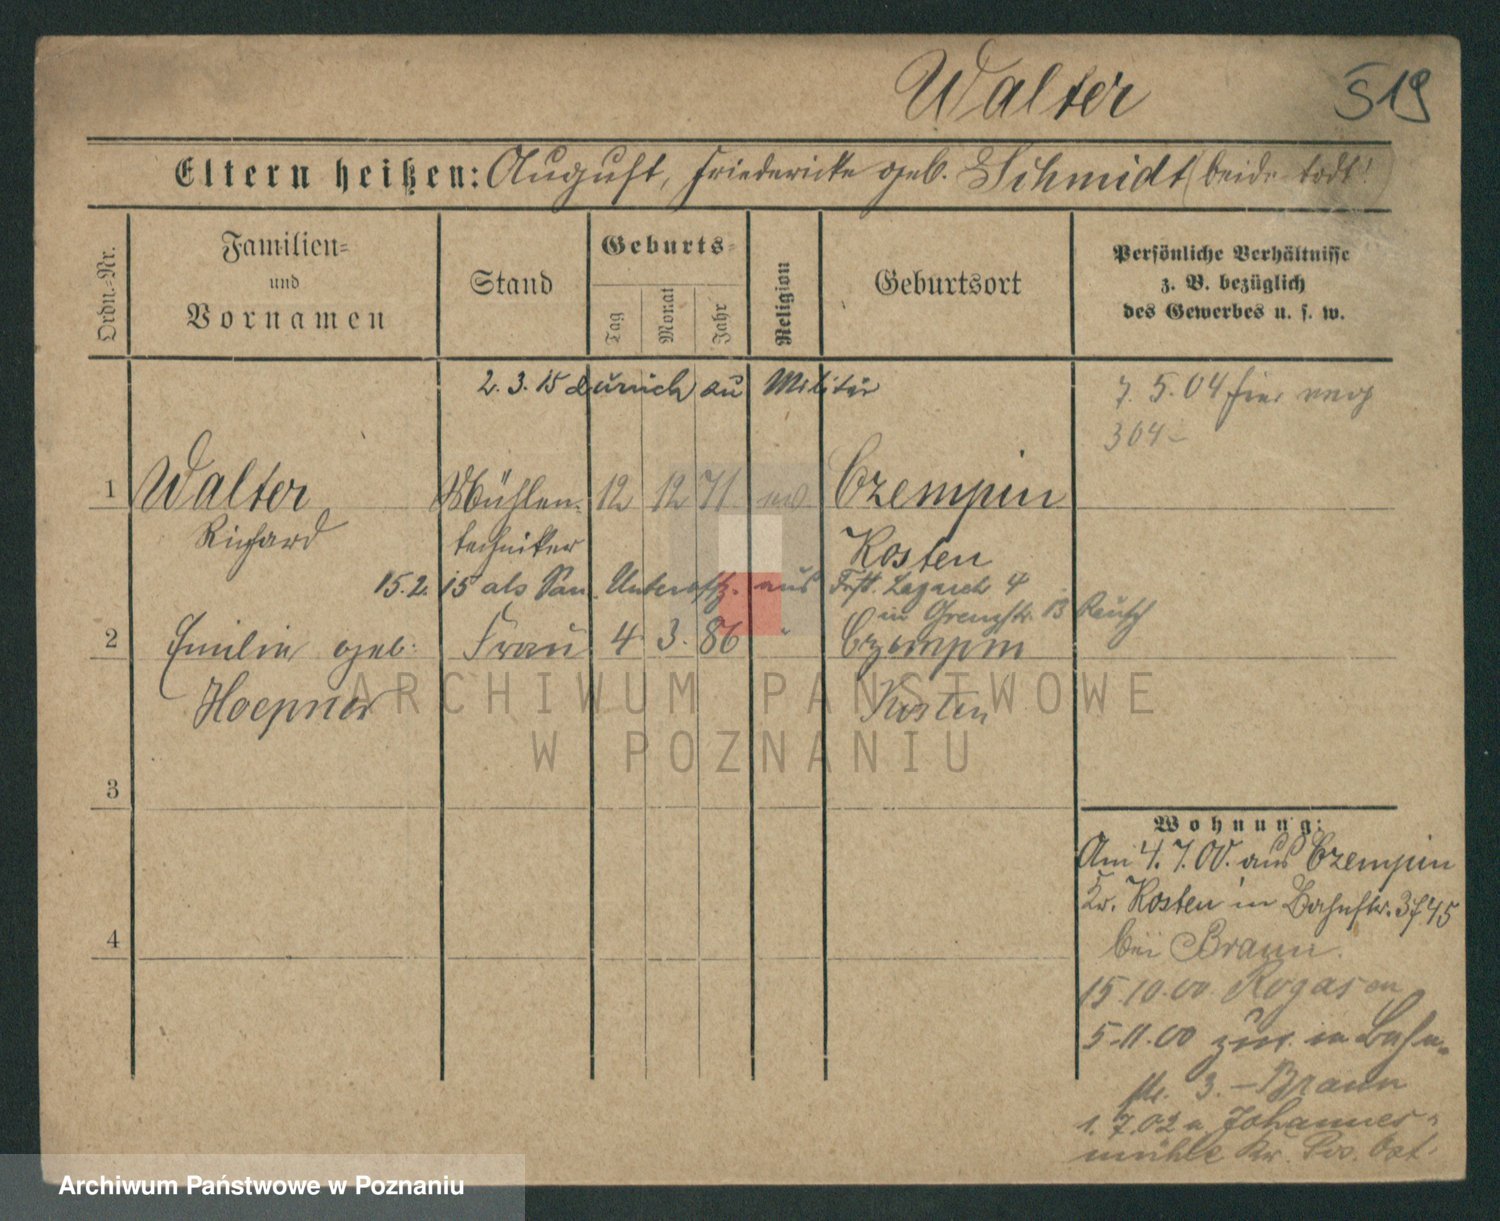 Walter 519
Eltern heißen: August, Friedericke geb. Schmidt (beide todt!)
Ordn.-Nr.
Familien-
und
Vornamen
Stand
Geburts-
Tag
Monat
Jahr
Religion
Geburtsort
Persönliche Verhältnisse
z. B. bezüglich
des Gewerbes u. s. w.
2. 3. 15 zurück au Militär
7. 5. 04 hier
304-
1 Walter Mühlen- 12 12 71 ev Czempin
Richard techniker Kosten
15. 2. 15 als San. Unteroffz. aus Fest. Lazareth 4
in Grenzstr. 13
2 Emilie geb. Frau 4 3. 86 " Czempin
Hoepner Kosten
ARCHIWUM PAŃSTWOWE
W POZNANIU
3
4
Wohnung:
Am 4. 7. 00. aus Czempin
Kr. Kosten in Bahnstr. 3
bei Braun.
15. 10. 00. Rogasen
5. 11. 00 zur. in Bahn-
str. 3. - Braun
1. 7. 02 n. Johannes-
mühle Kr. Pos. Ost.
Archiwum Państwowe w Poznaniu